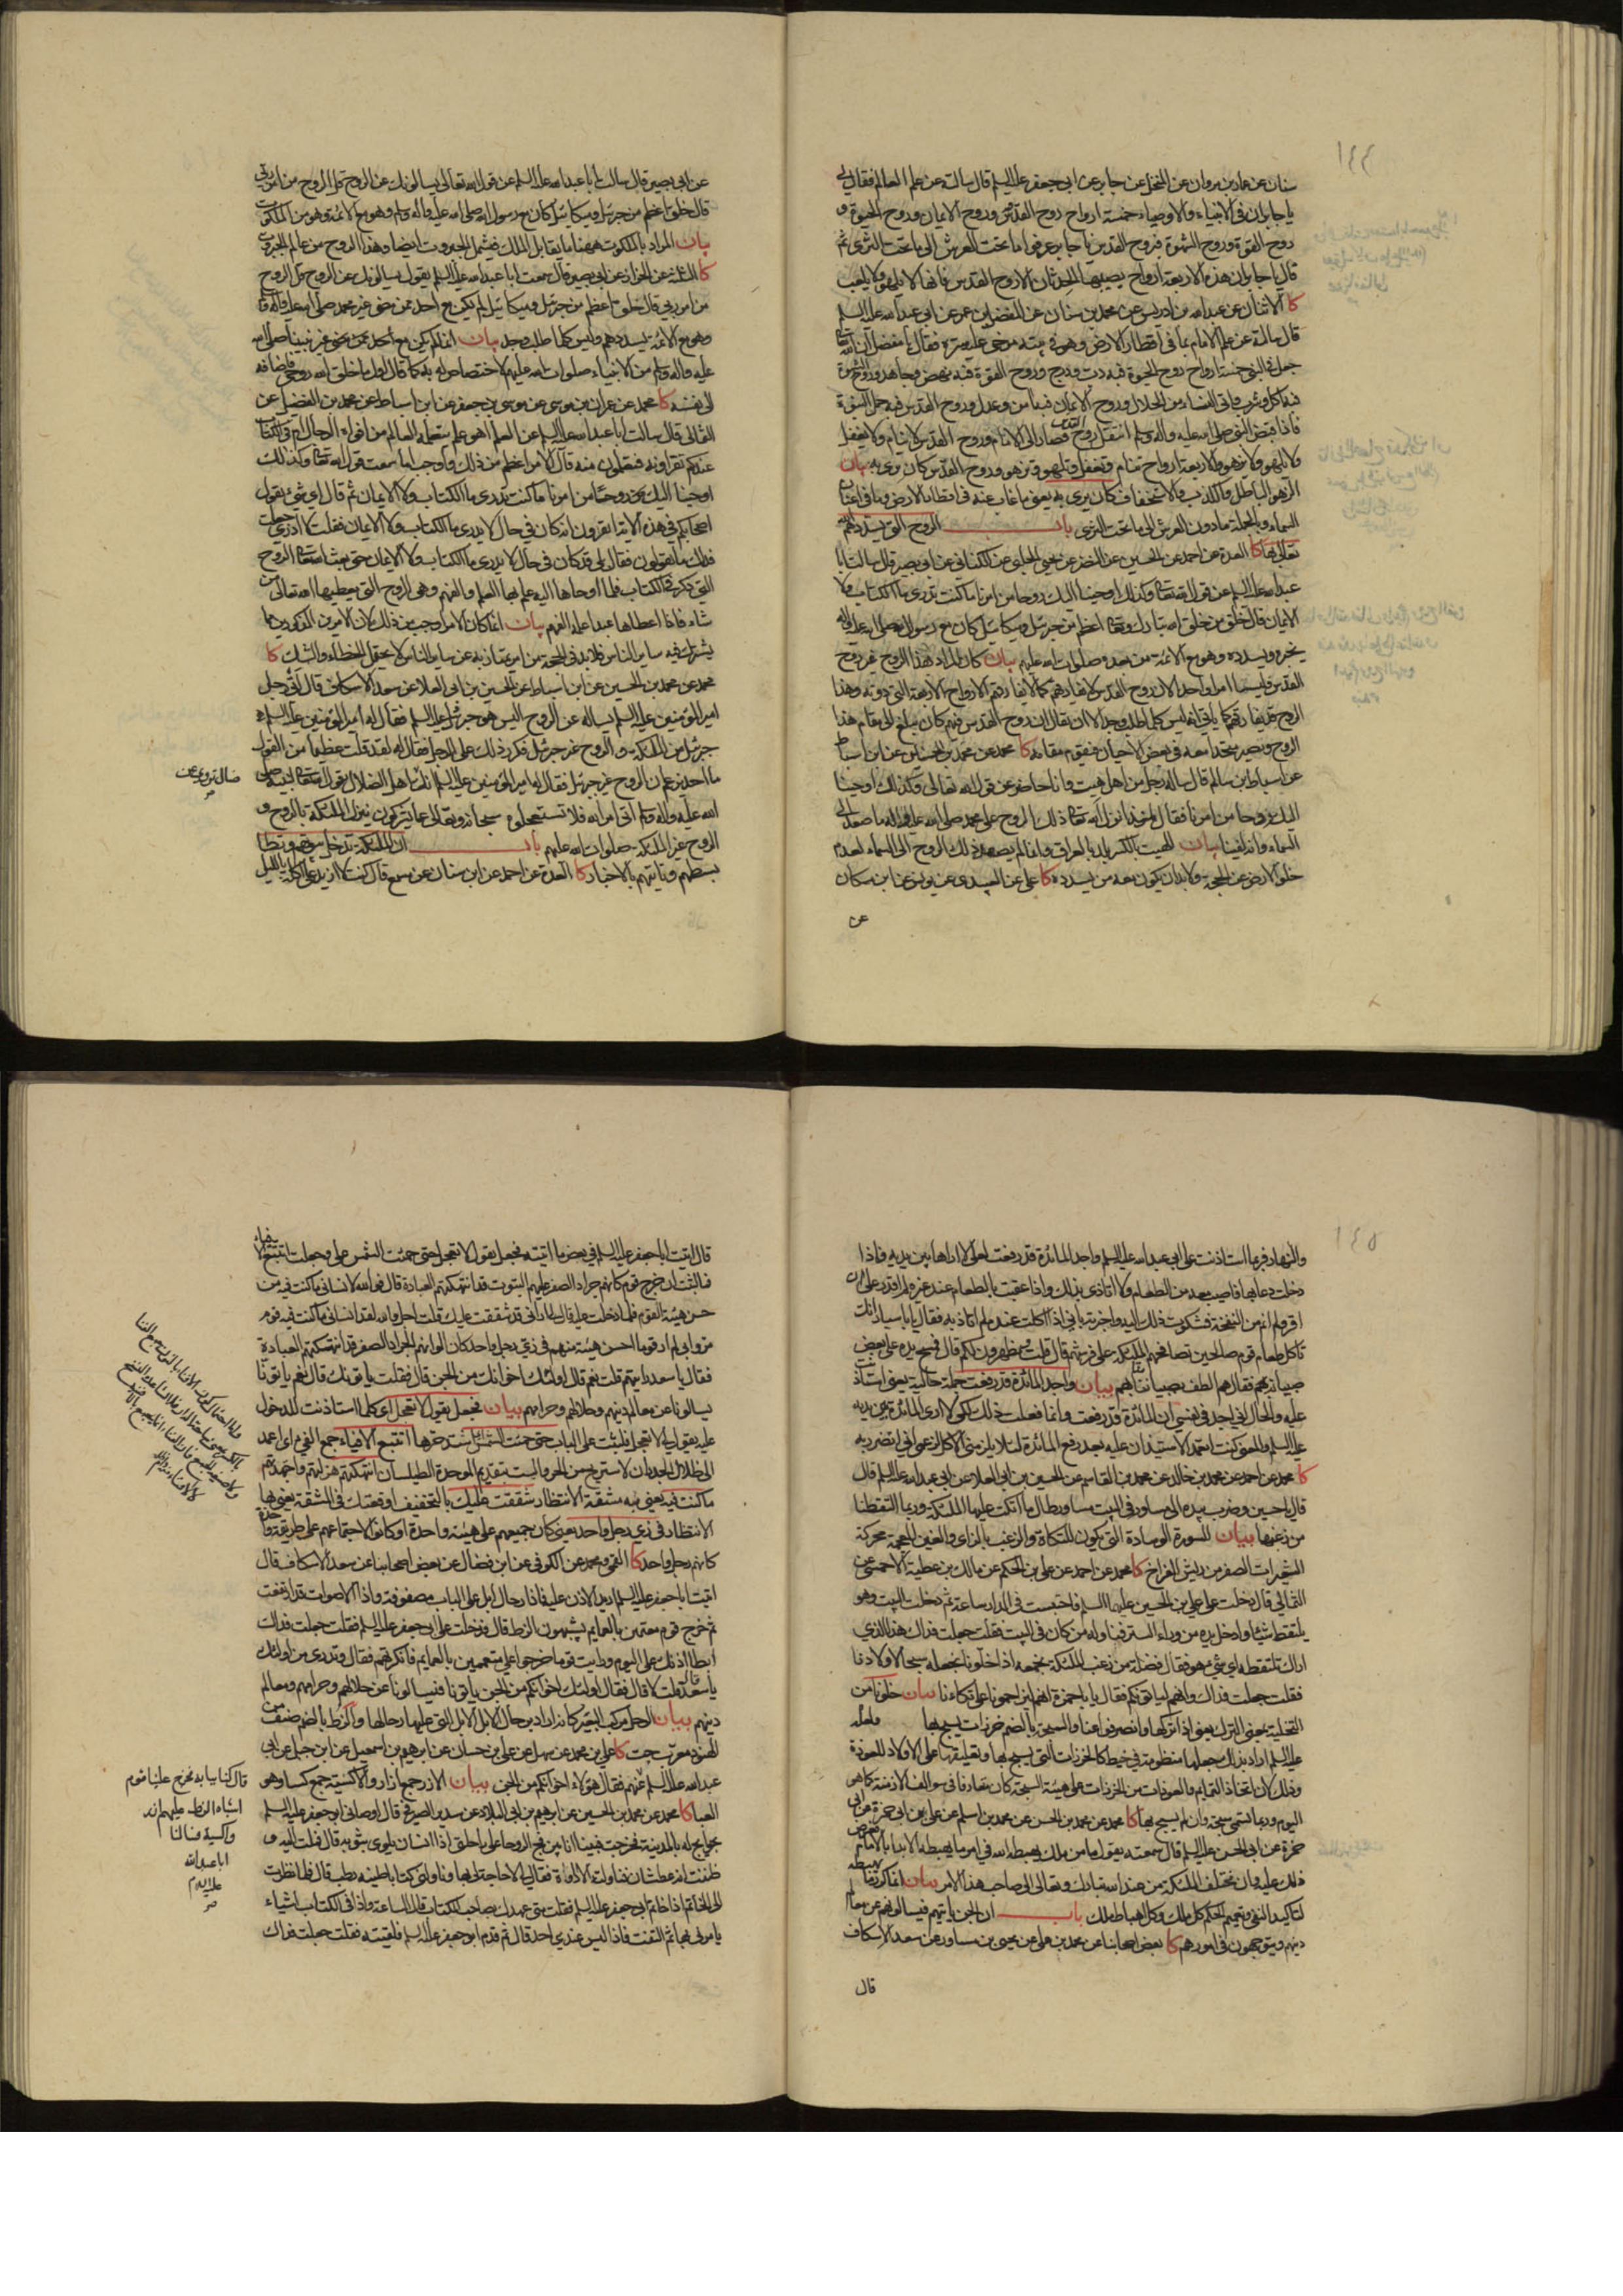 ١٤٤
سنان عن عمار بن مروان عن المنخل عن جابر عن ابى جعفر عليه السلم قال سالته عن علم العالم فقال لى
يا جابر ان فى الانبياء والاوصياء خمسة ارواح روح القدس وروح الايمان وروح الحيوة و
روح القوة وروح الشهوة فبروح القدس يا جابر عرفوا ما تحت العرش الى ما تحت الثرى ثم
قال يا جابر ان هذه الاربعة ارواح يصيبها الحدثان الا روح القدس فانها لا تلهو ولا تلعب
كا الاثنان عن عبد الله بن ادريس عن محمد بن سنان عن المفضل بن عمر عن ابى عبد الله عليه السلم
قال سالته عن علم الامام بما فى اقطار الارض وهو فى بيته مرخى عليه ستره فقال يا مفضل ان الله
جعل فى النبى خمسة ارواح روح الحيوة فبه دب ودرج وروح القوة فبه نهض وجاهد وروح الشهوة
فبه اكل وشرب واتى النساء من الحلال وروح الايمان فبه امن وعدل وروح القدس فبه حمل النبوة
فاذا قبض النبى صلى الله عليه واله وسلم انتقل روح القدس فصار الى الامام وروح القدس لا ينام ولا يغفل
ولا يلهو ولا يزهو والاربعة ارواح تنام وتغفل وتلهو وتزهو وروح القدس كان يرى به بيان
الزهو الباطل والكذب والاستخفاف كان يرى به يعنى ما غاب عنه فى اقطار الارض وما فى اعنان
السماء وبالجملة ما دون العرش الى ما تحت الثرى باب الروح التى يسددهم الله
تعالى بها كا العدة عن احمد عن الحسين عن النضر عن يحيى الحلبى عن الكنانى عن ابى بصير قال سالت ابا
عبد الله عليه السلم عن قول الله تعالى وكذلك اوحينا اليك روحا من امرنا ما كنت تدرى ما الكتاب ولا
الايمان قال خلق من خلق الله تبارك وتعالى اعظم من جبرئيل وميكائيل كان مع رسول الله صلى الله عليه واله
يخبره ويسدده وهو مع الائمة من بعده صلوات الله عليهم بيان كان المراد بهذا الروح غير روح
القدس وليسا امرا واحدا لان روح القدس لا يفارقهم كما لا يفارقهم الارواح الاربعة التى دونه وهذا
الروح قد يفارقهم كما ياتى انه ليس كلما طلب وجد الا ان يقال ان روح القدس فيهم كان يبلغ الى مقام هذا
الروح ويصير متحدا معه فى بعض الاحيان فيقوم مقامه كا محمد عن محمد بن الحسين عن ابن اسباط
عن اسباط بن سالم قال ساله رجل من اهل هيت وانا حاضر عن قول الله تعالى وكذلك اوحينا
اليك روحا من امرنا فقال منذ انزل الله تعالى ذلك الروح على محمد صلى الله عليه واله ما صعد الى
السماء وانه لفينا بيان الهيت بالكسر بلد بالعراق وانما لم يصعد ذلك الروح الى السماء لعدم
خلو الارض عن الحجة ولابد ان يكون معه من يسدده كا على عن العبيدى عن يونس عن ابن مسكان
عن
عن ابى بصير قال سالت ابا عبد الله عليه السلم عن قول الله تعالى يسالونك عن الروح قل الروح من امر ربى
قال خلق اعظم من جبرئيل وميكائيل كان مع رسول الله صلى الله عليه واله وسلم وهو مع الائمة وهو من الملكوت
بيان المراد بالملكوت ههنا ما يقابل الملك فيشمل الجبروت ايضا وهذا الروح من عالم الجبروت
كا الثلثة عن الخزاز عن ابى بصير قال سمعت ابا عبد الله عليه السلم يقول يسالونك عن الروح قل الروح
من امر ربى قال خلق اعظم من جبرئيل وميكائيل لم يكن مع احد ممن مضى غير محمد صلى الله عليه واله
وهو مع الائمة يسددهم وليس كلما طلب وجد بيان انما لم يكن مع احد ممن مضى غير نبينا صلى الله
عليه واله وسلم من الانبياء صلوات الله عليهم لاختصاصه به كما قال اول ما خلق الله روحى فاضافه
الى نفسه كا محمد عن عمران بن موسى عن موسى بن جعفر عن ابن اسباط عن محمد بن الفضيل عن
الثمالى قال سالت ابا عبد الله عليه السلم عن العلم اهو علم يتعلمه العالم من افواه الرجال ام فى الكتاب
عندكم تقراونه فتعلمون منه قال الامر اعظم من ذلك واوجب اما سمعت قول الله تعالى وكذلك
اوحينا اليك روحا من امرنا ما كنت تدرى ما الكتاب ولا الايمان ثم قال اى شىء يقول
اصحابكم فى هذه الاية ايقرون انه كان فى حال لا يدرى ما الكتاب ولا الايمان فقلت لا ادرى جعلت
فداك ما يقولون فقال بلى قد كان فى حال لا يدرى ما الكتاب ولا الايمان حتى بعث الله تعالى الروح
التى ذكر فى الكتاب فلما اوحاها اليه علم بها العلم والفهم وهى الروح التى يعطيها الله تعالى من
شاء فاذا اعطاها عبدا علمه الفهم بيان انما كان الامر اوجب من ذلك لان الامرين المذكورين مما
يشترك فيه ساير الناس فلابد فى الحجة من امر يمتاز به عن ساير الناس لا يحتمل الخطاء والشك كا
محمد عن محمد بن الحسين عن ابن اسباط عن الحسين بن ابى العلا عن سعد الاسكاف قال اتى رجل
امير المؤمنين عليه السلم يساله عن الروح اليس هو جبرئيل عليه السلم فقال له امير المؤمنين عليه السلم
جبرئيل من الملئكة والروح غير جبرئيل فكرر ذلك على الرجل فقال له لقد قلت عظيما من القول
ما احد يزعم ان الروح غير جبرئيل فقال له امير المؤمنين عليه السلم انك ضال تروى عن اهل الضلال يقول الله تعالى لنبيه صلى
الله عليه واله وسلم اتى امر الله فلا تستعجلوه سبحانه وتعالى عما يشركون ينزل الملئكة بالروح و
الروح غير الملئكة صلوات الله عليهم باب ان الملئكة تدخل بيوتهم وتطا
بسطهم وتاتيهم بالاخبار كا العدة عن احمد عن ابن سنان عن مسمع قال كنت لا ازيد على اكلة بالليل
ضال تروى عن
١٤٥
والنهار فربما استاذنت على ابى عبد الله عليه السلم واجد المائدة قد رفعت لعلى لا اراها بين يديه فاذا
دخلت دعا بها فاصيب معه من الطعام ولا اتاذى بذلك واذا عقبت بالطعام عند غيره لم اقدر على ان
اقر ولم انم من النفخة فشكوت ذلك اليه واخبرته بانى اذا اكلت عنده لم اتاذ به فقال يا با سيار انك
تاكل طعام قوم صالحين تصافحهم الملئكة على فرشهم قال قلت ويظهرون لكم قال فمسح يده على بعض
صبيانه فقال هم الطف بصبياننا منا بهم بيان واجد المائدة قد رفعت جملة حالية يعنى استاذنت
عليه والحال انى اجد فى نفسى ان المائدة قد رفعت وانما فعلت ذلك لكى لا ارى المائدة بين يديه
عليه السلم والمعنى كنت اتعمد الاستيذان عليه بعد رفع المائدة لئلا يلزمنى الاكل لزعمى انى اتضرر به
كا محمد عن احمد عن محمد بن خالد عن محمد بن القاسم عن الحسين بن ابى العلا عن ابى عبد الله عليه السلم قال
قال يا حسين وضرب بيده الى مساور فى البيت مساور طال ما اتكت عليها الملئكة وربما التقطنا
من زغبها بيان المسورة الوسادة التى تكون للتكاة والزغب بالزاى والغين المعجمة محركة
الشعيرات الصفر من ريش الفراخ كا محمد عن احمد عن على بن الحكم عن مالك بن عطية الاحمسى عن
الثمالى قال دخلت على على بن الحسين عليهما السلم فاحتبست فى الدار ساعة ثم دخلت البيت وهو
يلتقط شيئا وادخل يده من وراء الستر فناوله من كان فى البيت فقلت جعلت فداك هذا الذى
اراك تلتقطه اى شىء هو فقال فضلة من زغب الملئكة نجمعه اذا خلونا نجعله سبحا لاولادنا
فقلت جعلت فداك وانهم لياتونكم فقال يا با حمزة انهم ليزاحمونا على تكاءنا بيان خلونا من
التخلية بمعنى الترك يعنى اذا تركها وانصرفوا عنا والسبحة بالضم خرزات يسبح بها ولعله
عليه السلم اراد بذلك جعلها منظومة فى خيط كالخرزات التى يسبح بها وتعليقها على الاولاد للعوذة
وذلك لان اتخاذ التمايم والعوذات من الخرزات على هيئة السبحة كان متعارفا فى سوالف الازمنة كما هو
اليوم وربما تسمى سبحة وان لم يسبح بها كا محمد عن محمد بن الحسن عن محمد بن اسلم عن على بن ابى حمزة
عن ابى الحسن عليه السلم قال سمعته يقول ما من ملك يهبطه الله فى امر ما يهبطه الا بدا بالامام فعرض
ذلك عليه وان مختلف الملئكة من عند الله تبارك وتعالى الى صاحب هذا الامر بيان
لتاكيد النفى وتعميم الحكم كل ملك وكل اهباط ملك باب ان الجن ياتيهم فيسالونهم عن معالم
دينهم ويتوجهون فى امورهم كا بعض اصحابنا عن محمد بن على عن يحيى بن مساور عن سعد الاسكاف
قال
قال اتيت ابا جعفر عليه السلم فى بعض ما اتيته فجعل يقول لا تعجل حتى حميت الشمس على وجعلت اتتبع الافياء
فما لبث ان خرج قوم كانهم جراد الصفر عليهم البتوت قد انتهكتهم العبادة قال فوالله لانسانى ما كنت فيه من
حسن هيئة القوم فلما دخلت عليه قال لى ارانى قد شققت عليك قلت اجل والله لقد انسانى ما كنت فيه قوم
مروا بى لم ار قوما احسن هيئة منهم فى زى رجل واحد كان الوانهم الجراد الصفر قد انتهكتهم العبادة
فقال يا سعد رايتهم قلت نعم قال اولئك اخوانك من الجن قال فقلت ياتونك قال نعم ياتونا
يسالونا عن معالم دينهم وحلالهم وحرامهم بيان فجعل يقول لا تعجل اى كلما استاذنت للدخول
عليه يقول لى لا تعجل فلبثت على الباب حتى حميت الشمس اى اشتد حرها اتتبع الافياء جمع الفىء اى اعمد
الى ظلال الجدران لاستريح من الحر والبت بتقديم الموحدة الطيلسان انتهكتهم هزلتهم واجهدتهم
ما كنت فيه يعنى به مشقة الانتظار شققت عليك بالتخفيف اوقعتك فى المشقة يعنى بها
الانتظار فى زى رجل واحد يعنى كان جميعهم على هيئة واحدة او كانوا لاجتماعهم على طريقة واحدة
كانهم رجل واحد كا القمى ومحمد عن الكوفى عن ابن فضال عن بعض اصحابنا عن سعد الاسكاف قال
اتيت ابا جعفر عليه السلم اريد الاذن عليه فاذا رحال ابل على الباب مصفوفة واذا الاصوات قد ارتفعت
ثم خرج قوم معتمين بالعمايم يشبهون الزط قال فدخلت على ابى جعفر عليه السلم فقلت جعلت فداك
ابطا اذنك على اليوم ورايت قوما خرجوا على متعممين بالعمايم فانكرتهم فقال وتدرى من اولئك
يا سعد قلت لا قال فقال اولئك اخوانكم من الجن ياتونا فيسالونا عن حلالهم وحرامهم ومعالم
دينهم بيان الرحل مركب البعير كانه اراد برحال الابل الابل التى عليها رحالها والزط بالضم صنف من
الهنود معرب جت كا على بن محمد عن سهل عن على بن حسان عن ابرهيم بن اسمعيل عن ابن جبل عن ابى
عبد الله عليه السلم عنهم فقال هؤلاء اخوانكم من الجن بيان الازر جمع ازار والاكسية جمع كساء وهو
العبا كا محمد عن محمد بن الحسين عن ابرهيم بن ابى البلاد عن سدير الصيرفى قال اوصانى ابو جعفر عليه السلم
بحوايج له بالمدينة فخرجت فبينا انا بين فج الروحا على راحلتى اذا انسان يلوى بثوبه قال فملت اليه و
ظننت انه عطشان فناولته الاداوة فقال لى لا حاجة لى بها وناولنى كتابا طينه رطب قال فلما نظرت
الى الخاتم اذا خاتم ابى جعفر عليه السلم فقلت متى عهدك بصاحب الكتاب قال الساعة واذا فى الكتاب اشياء
يامرنى بها ثم التفت فاذا ليس عندى احد قال ثم قدم ابو جعفر عليه السلم فلقيته فقلت جعلت فداك
قال كنا ببابه فخرج علينا قوم
اشباه الزط عليهم ازر
واكسية فسالنا
ابا عبد الله
عليه السلام